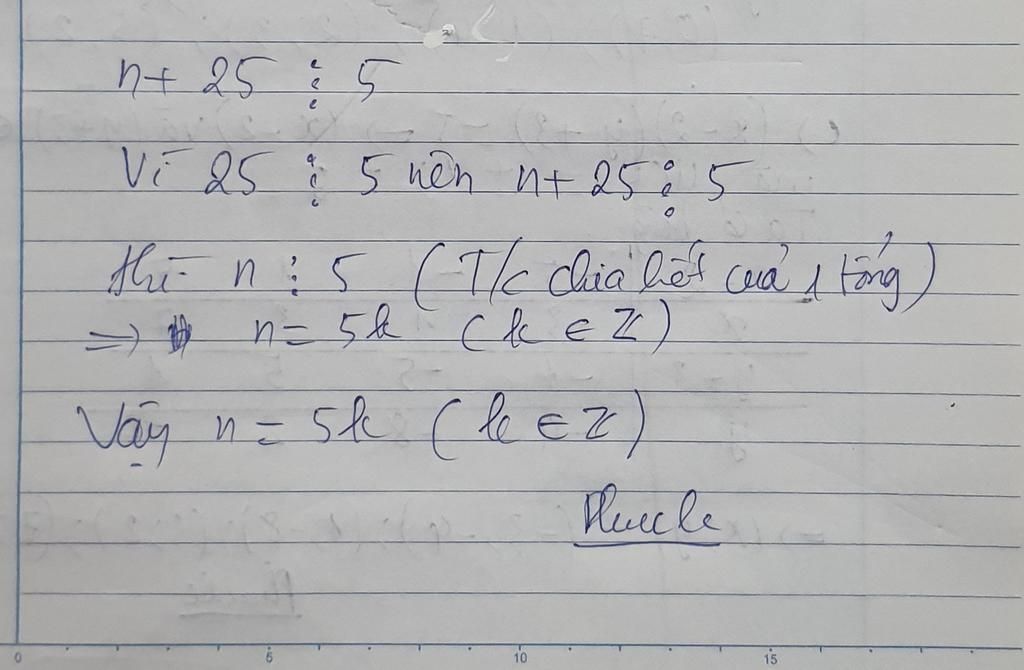 n + 25 ⋮ 5
Vì 25 ⋮ 5 nên n + 25 ⋮ 5
thì n ⋮ 5 (T/c chia hết của 1 tổng)
=> n = 5k (k ∈ Z)
Vậy n = 5k (k ∈ Z)
0 5 10 15